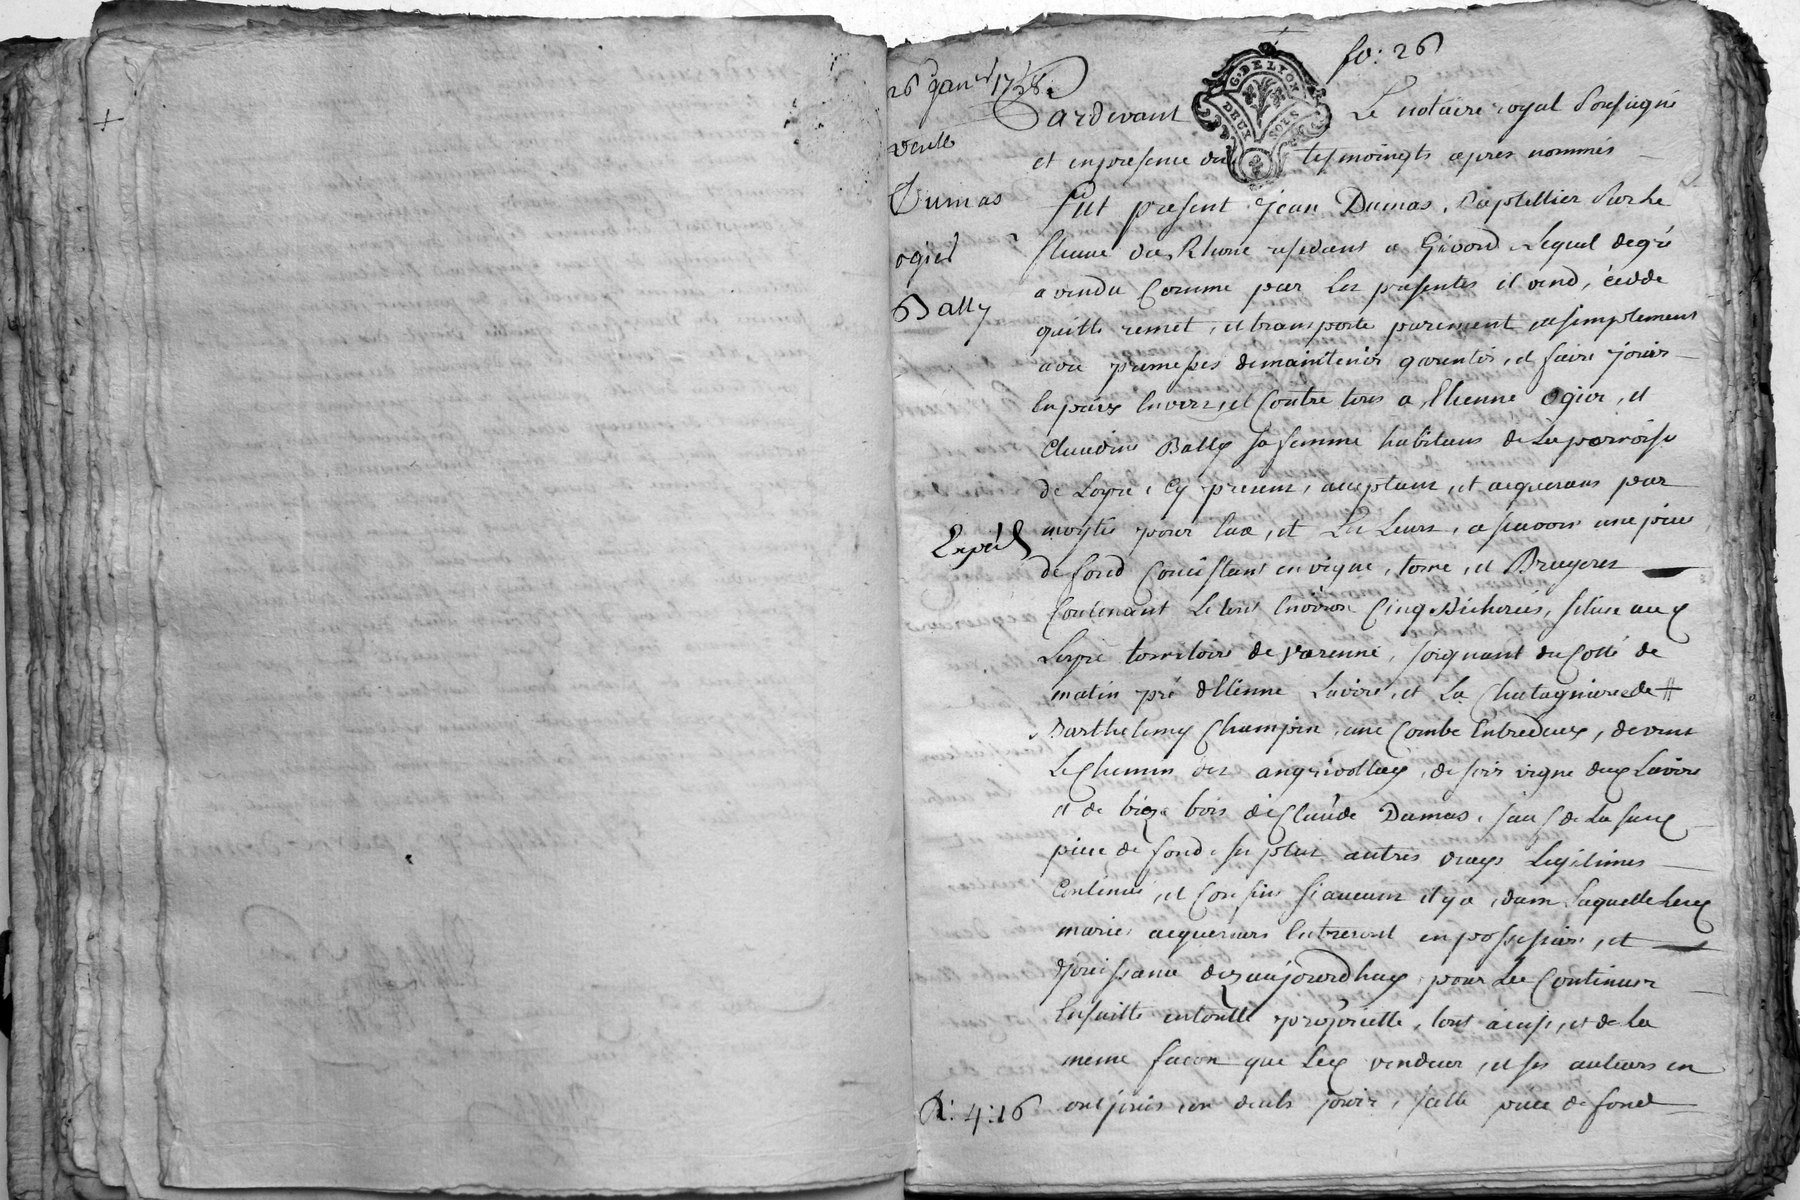 fo: 26
26 janer 1758.
vente
Dumas
ogier
Bally
Expéd
G. DE LYON
DEUX SOLS
Pardevant Le notaire royal soussigné
et en presence des tesmoingts apres nommés
fut present jean Dumas, sur le
fleuve du Rhone residant a Givord Lequel de gré
a vendu Comme par les presentes il vend, cedde
quitte remet, et transporte purement et simplement
avec promesses de maintenir garentir, et faire jouir
En paix Envers, et Contre tous a Etienne Ogier, et
Claudine Bally sa femme habitans de La parroisse
de Loyre, Cy presens, acceptans, et acquerans par
moytié pour Eux, et Les Leurs, a scavoir une piece
de fond Consistant en vigne, terre, et Bruyeres
Contenant Le tout Environ Cinq Bicherées, situé aux
territoire de varenne, joignant du Cotté de
matin pré d'Etienne et La Chatagnierede
Barthelemy Champin, une Combe Entredeux, de vent
Le Chemin des de soir vigne dud
et de bize bois de Claude Dumas, sauf de La susd
piece de fond ses plus autres vrays Legitimes
Continus, et Confins si aucuns il y a, dans Laquelle Lesd
mariés acquereurs Entreront en possession, et
Jouissance dez aujourdhuy pour Les Continuer
Ensuitte en toutte proprietté, tout ainsi, et de la
meme facon que Led vendeur, et ses auteurs en
ont jouis, ou deub jouir, piece de fond
R: 4:16